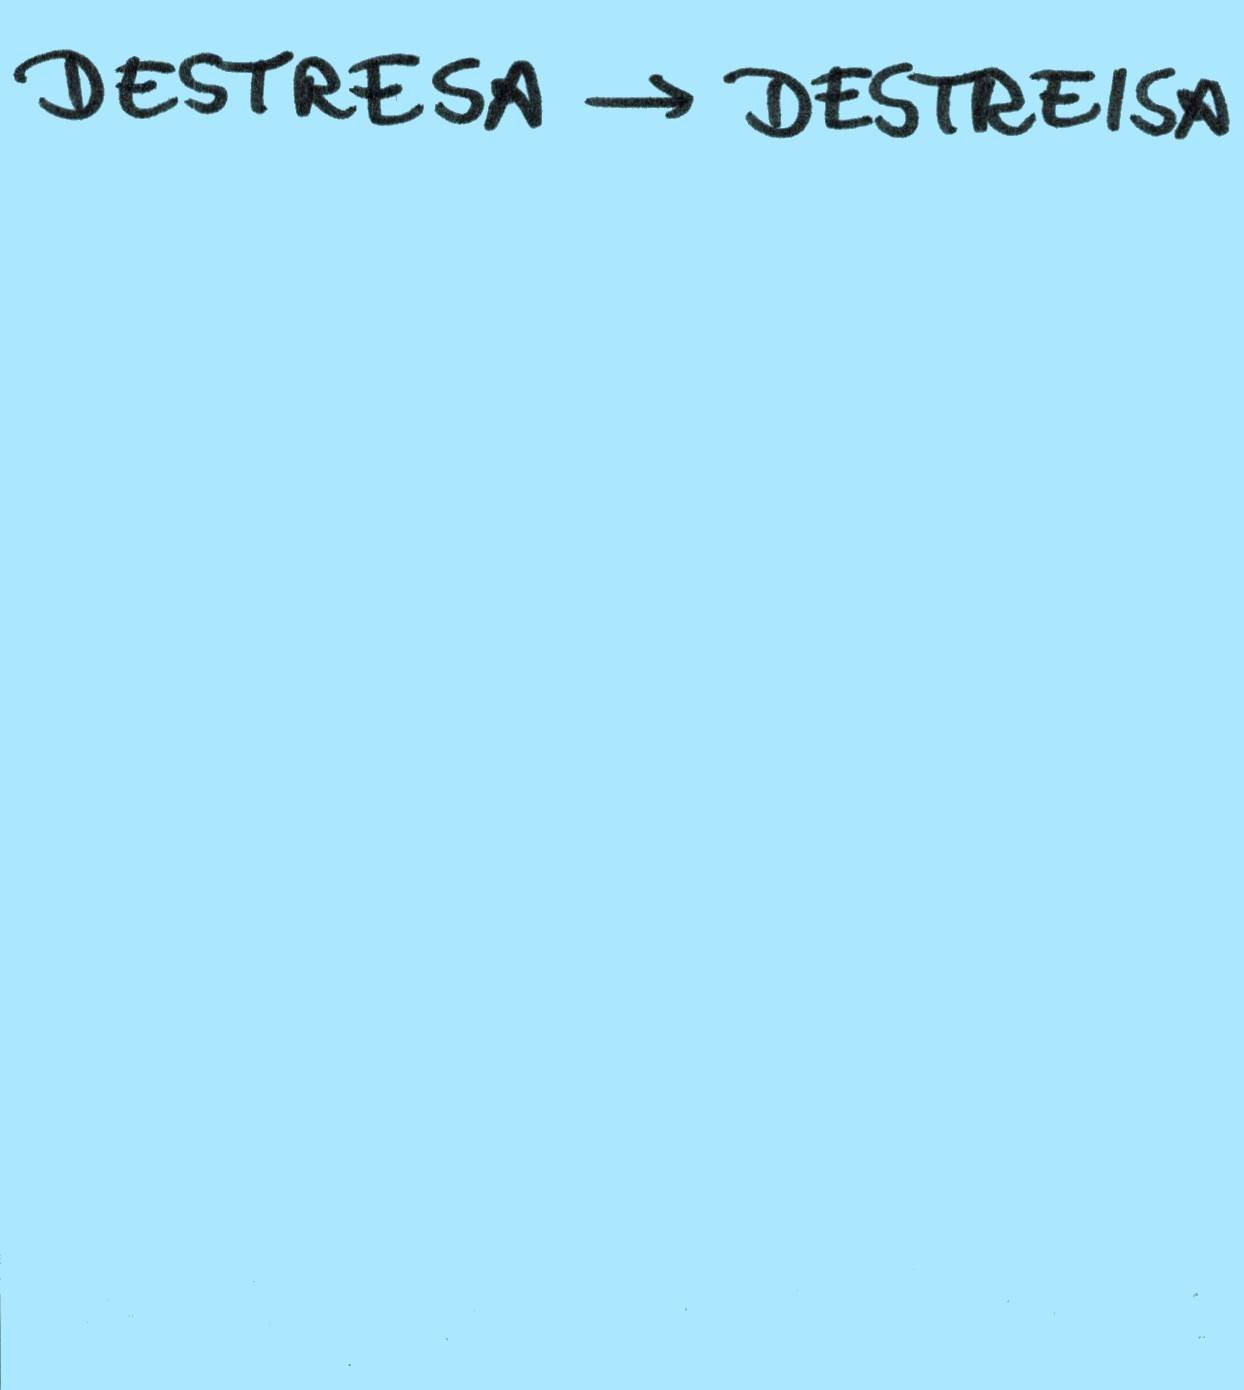 DESTRESA → DESTREISA